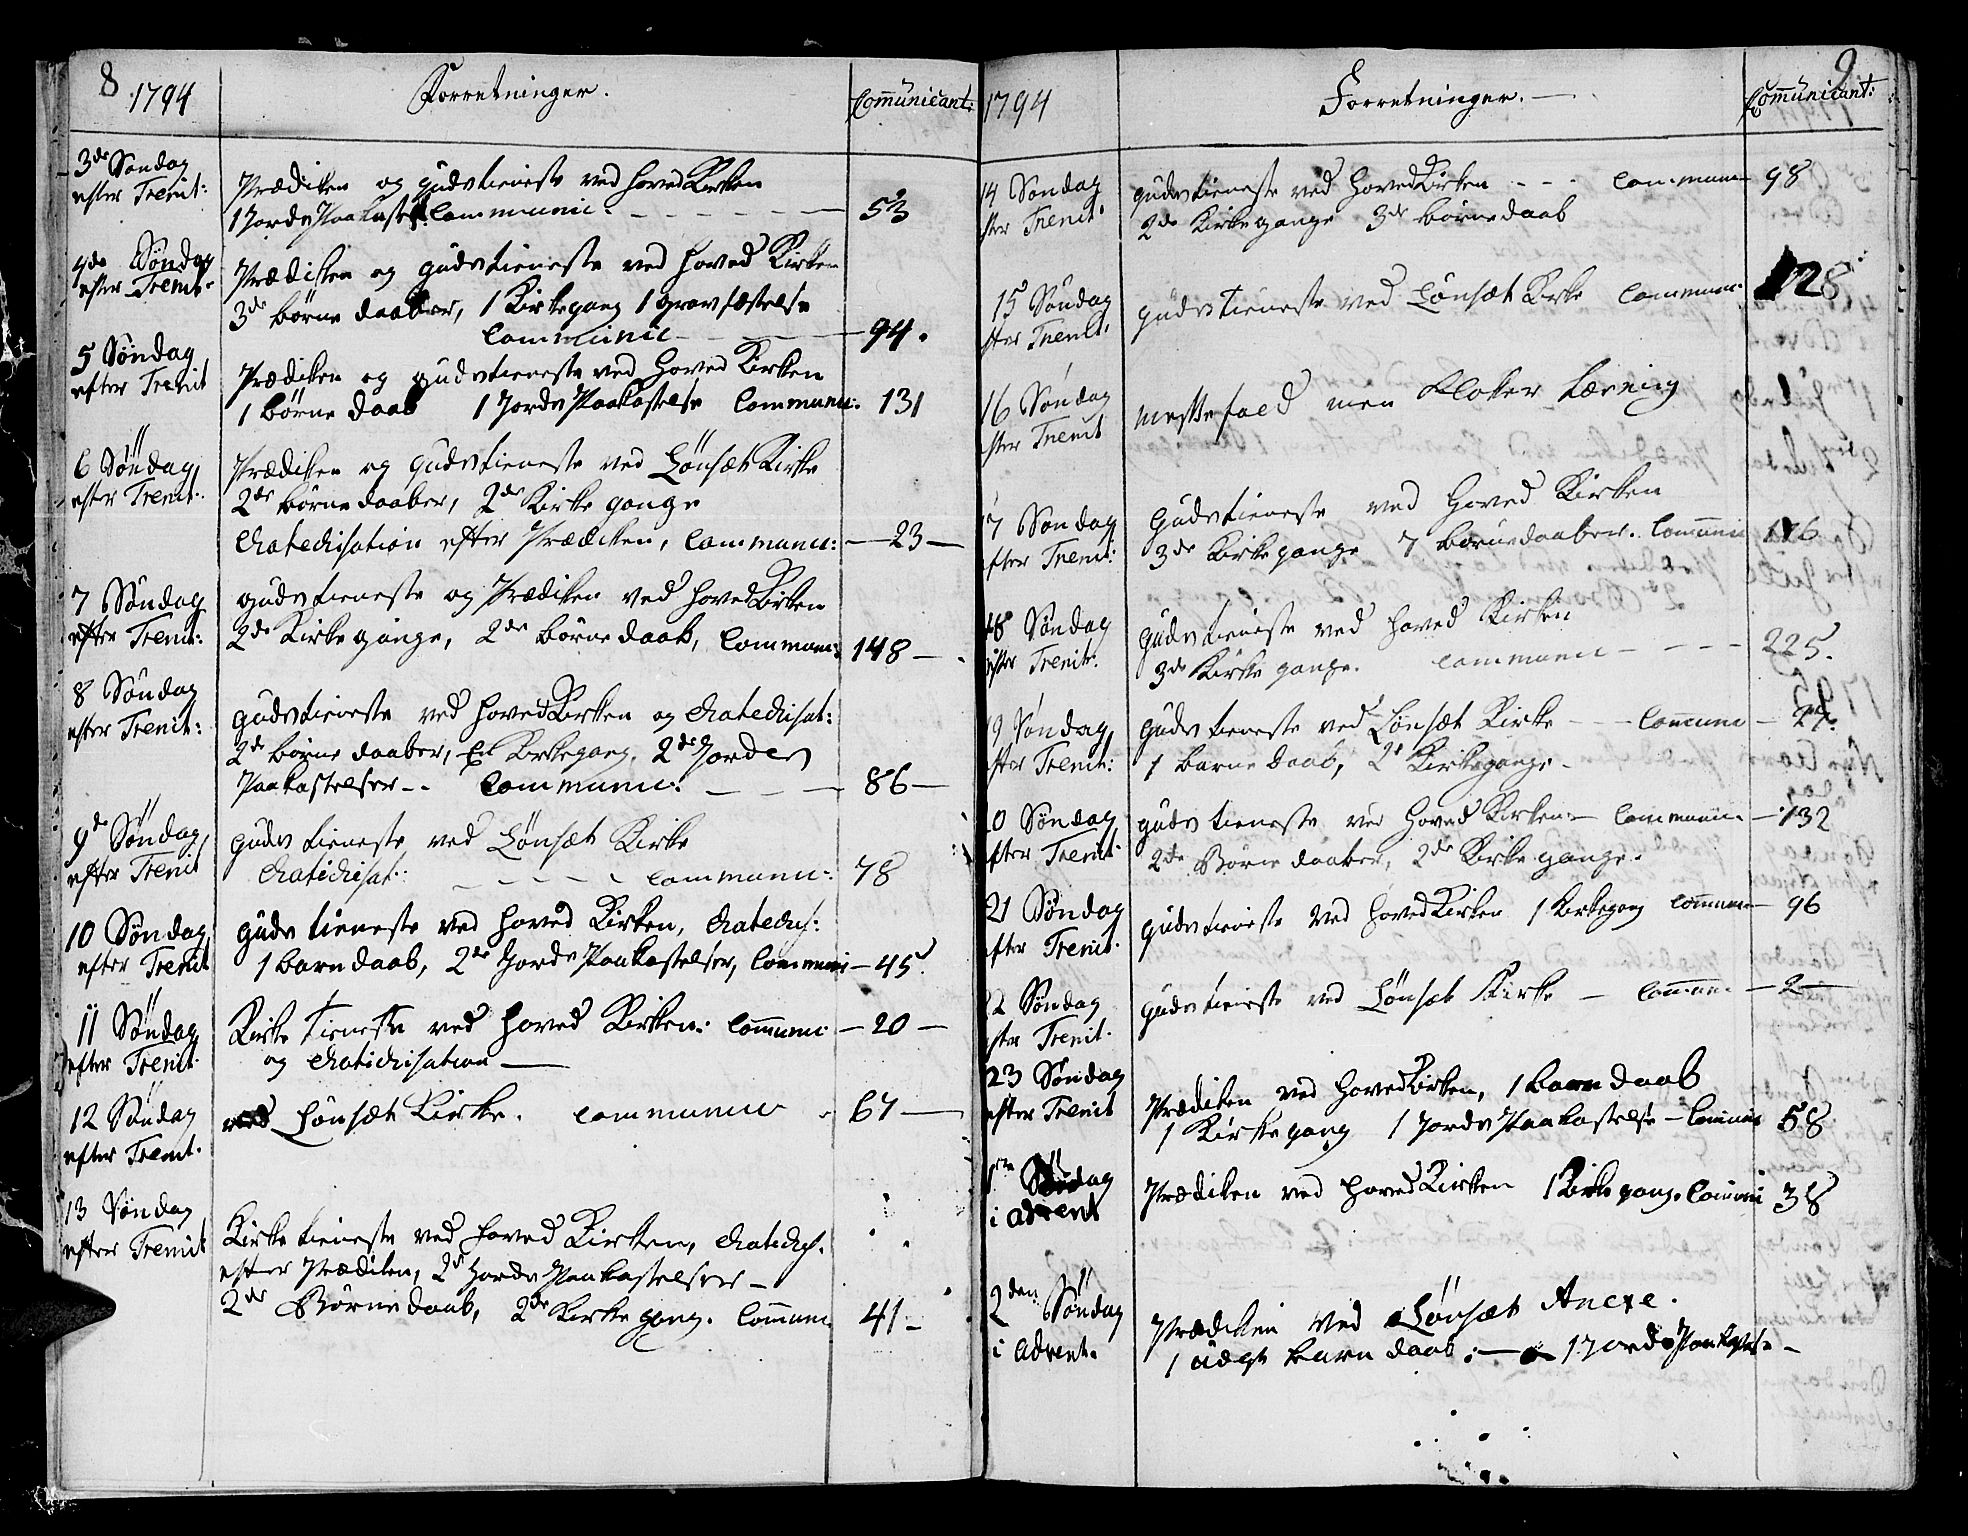 8
1794
Forretninger.
Communicant:
3de Søndag
efter Trenit:
Prædiken og gudstieneste ved HovedKirken
1 Jords Paakastelse. Communic: 53
4de Søndag
efter Trenit:
Prædiken og gudstieneste ved Hoved Kirken
3de börne daaber, 1 Kirkegang 1 gravfæstelse
Communic 94.
5 Söndag
efter Trenit
Prædiken og gudstieneste ved Hoved Kirken
1 börne daab 1 Jords Paakastelse Communic: 131
6 Söndag
efter Trenit:
Prædiken og Gudstieneste ved Lönset Kirke
2de börnedaaber, 2de Kirkegange
Chatechisation efter Prædiken, Communic: 23
7 Söndag
efter Trenit:
gudstieneste og Prædiken ved HovedKirken
2de Kirkegange, 2de börne daab, Commun: 148
8 Söndag
efter Trenit:
gudstieneste ved HovedKirken og Chatechisat:
2de börne daaber, En Kirkegang, 2de Jordes
Paakastelser Communic: 86
9de Söndag
efter Trenit
gudstieneste ved Lönset Kirke
Chatichisat: Communic: 78
10 Söndag
efter Trenit
gudstieneste ved Hoved Kirken, Chatechs:
1 barn daab, 2de Jords Paakastelser, Communi 45
11 Söndag
efter Trenit
Kirketieneste ved Hoved Kirken: Communi 20
og Chatichisation
12 Söndag
efter Trenit.
ved Lönset Kirke. Communic 67
13 Söndag
efter Trenit
Kirketieneste ved Hoved Kirken, Chatechs.
efter Prædiken, 2de Jords Paakastelser
2de Börnedaab, 2de Kirkegang. Commun. 41
9
1794
Forretninger.
Communicant:
14 Søndag
efter Trenit:
gudstieneste ved HovedKirken Commun 98
2de Kirkegange 3de börnedaab
15 Söndag
efter Trenit:
gudstieneste ved Lönset Kirke Communi: 128
16 Söndag
efter Trenit
Messefald men Kloker Læsning
17 Søndag
efter Trenit:
Gudstieneste ved Hoved Kirken
3de Kirkegange 7 börnedaaber. Communi 176
18 Söndag
efter Trenit:
gudstieneste ved Hoved Kirken
3de Kirkegange. Communi 225.
19 Söndag
efter Trenit:
gudstieneste ved Lönset Kirke Communi 27.
1 barne daab, 2de Kirkegange
20 Söndag
efter Trenit
gudstieneste ved Hoved Kirken Communi 132
2de Börne daaber, 2de Kirkegange.
21 Søndag
efter Trenit
gudstieneste ved HovedKirken 1 Kirkegang Commun 96
22 Søndag
efter Trenit.
gudstieneste ved Lönset Kirke Commun 2
23 Søndag
efter Trenit
Prædiken ved HovedKirken, 1 barn daab
1 Kirkegang 1 Jords Paakastelse Communi 58
Söndag
i Advent
Prædiken ved HovedKirken 1 Kirkegang. Communi 38
2den Söndag
i Advent.
Prædiken ved Lönset Anexe.
1 barn daab 1 Jords